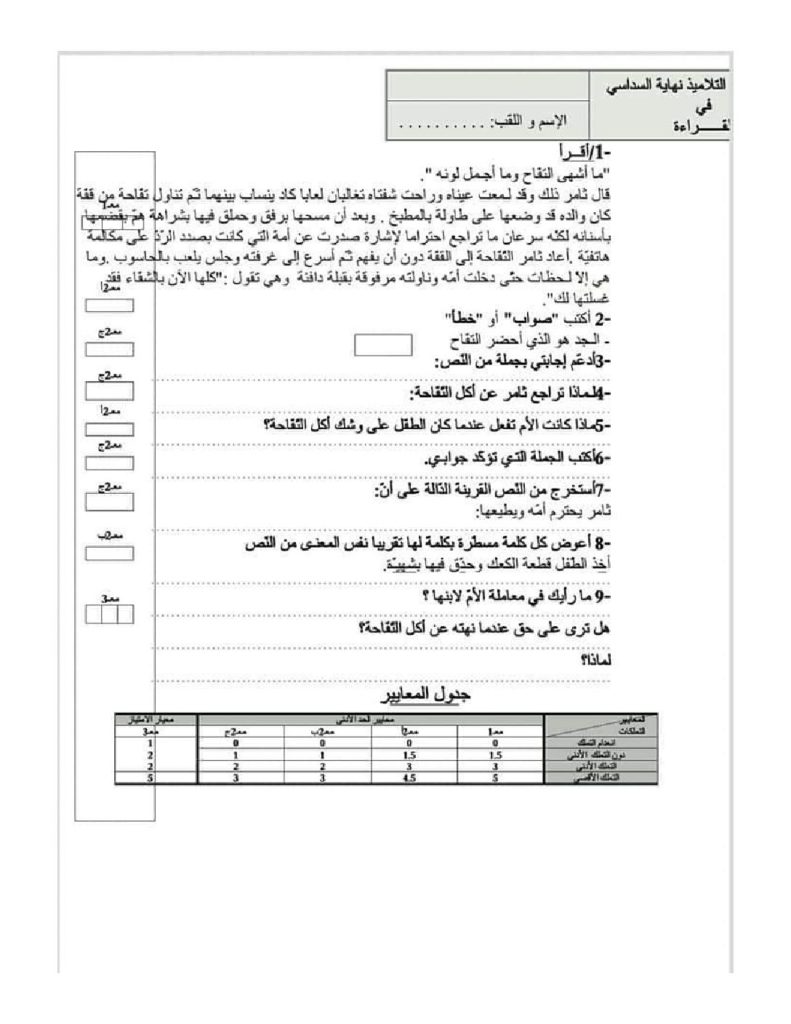 التلاميذ نهاية السداسي
في
القـــراءة
الإسم و اللقب: . . . . . . . . . . .
-1/أقــرأ
"ما أشهى التفاح وما أجمل لونه ".
قال ثامر ذلك وقد لمعت عيناه وراحت شفتاه تغالبان لعابا كاد ينساب بينهما ثمّ تناول تفاحة من قفة
كان والده قد وضعها على طاولة بالمطبخ . وبعد أن مسحها برفق وحملق فيها بشراهة همّ بقضمها
بأسنانه لكنّه سرعان ما تراجع احتراما لإشارة صدرت عن أمة التي كانت بصدد الردّ على مكالمة
هاتفيّة .أعاد ثامر التّفاحة إلى القفة دون أن يفهم ثم أسرع إلى غرفته وجلس يلعب بالحاسوب .وما
هي إلا لحظات حتّى دخلت أمّه وناولته مرفوقة بقبلة دافئة وهي تقول :"كلها الآن بالشفاء فقد
غسلتها لك".
-2 أكتب "صواب" أو "خطأ"
- الجد هو الذي أحضر التفاح
-3أدعّم إجابتي بجملة من النّص:
-4لماذا تراجع ثامر عن أكل التّفاحة:
-5ماذا كانت الأم تفعل عندما كان الطفل على وشك أكل التّفاحة؟
-6أكتب الجملة التي تؤكّد جوابي.
-7أستخرج من النّص القرينة الدّالة على أنّ:
ثامر يحترم أمّه ويطيعها:
-8 أعوض كل كلمة مسطّرة بكلمة لها تقريبا نفس المعنى من النّص
أخذ الطفل قطعة الكعك وحدّق فيها بشهيّة.
-9 ما رأيك في معاملة الأمّ لابنها ؟
هل ترى على حق عندما نهته عن أكل التّفاحة؟
لماذا؟
مع1
مع2أ
مع2ج
مع2ج
مع2أ
مع2ج
مع2ج
مع2ب
مع3
جدول المعايير
المعايير معايير الحد الأدنى معيار الامتياز
التملكات مع1 مع2أ مع2ب مع2ج مع3
انعدام التملك 0 0 0 0 1
دون التملك الأدنى 1.5 1.5 1 1 2
التملك الأدنى 3 3 2 2 2
التملك الأقصى 5 4.5 3 3 5